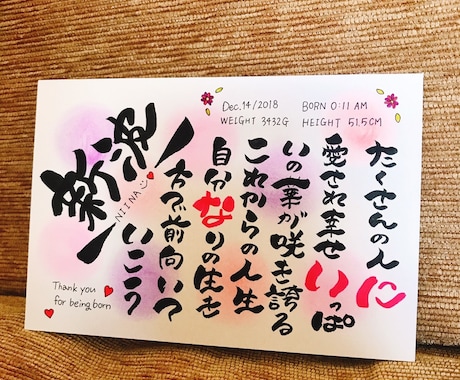 Dec. 14/2018 BORN 0:11 AM
WEIGHT 3432G HEIGHT 51.5CM
たくさんの人に
愛され幸せいっぱ
いの華が咲き誇る
これからの人生
自分なりの生き
方で前向いて
いこう
新波
NIINA
Thank you
for being born